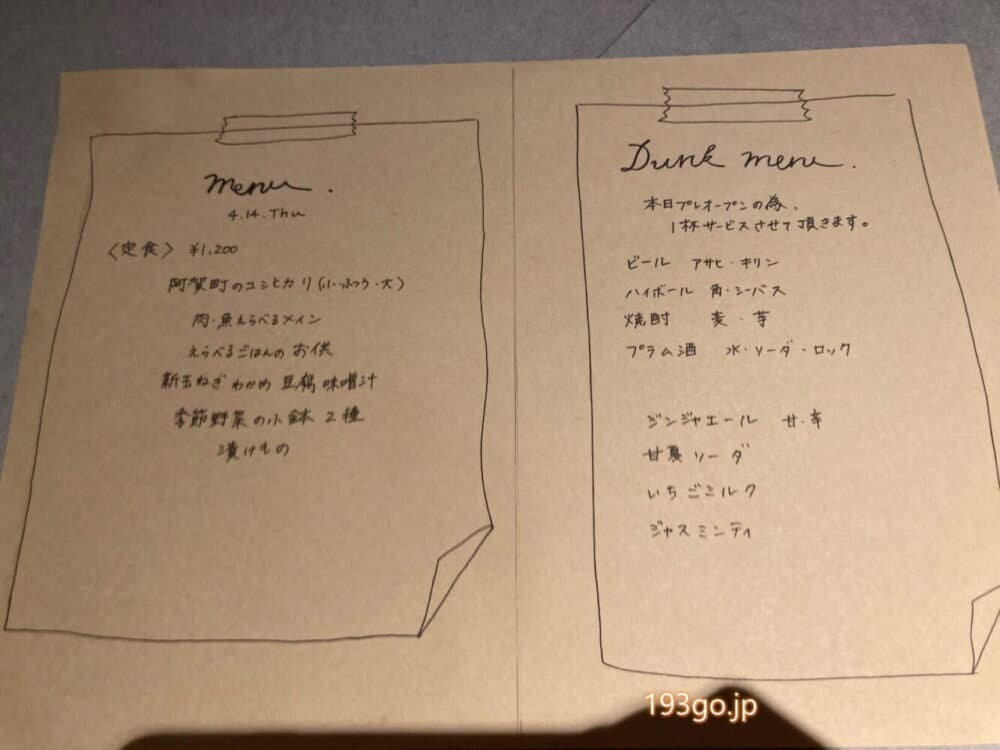 menu.
4.14.Thu
〈定食〉 ¥1,200
阿賀町のコシヒカリ(小・ふつう・大)
肉・魚えらべるメイン
えらべるごはんの お供
新玉ねぎ わかめ 豆腐 味噌汁
季節野菜の小鉢 2種
漬けもの
Dunk menu.
本日プレオープンの為、
1杯サービスさせて頂きます。
ビール アサヒ・キリン
ハイボール 角・シーバス
焼酎 麦・芋
プラム酒 水・ソーダ・ロック
ジンジャエール 甘・辛
甘夏ソーダ
いちごミルク
ジャスミンティ
193go.jp